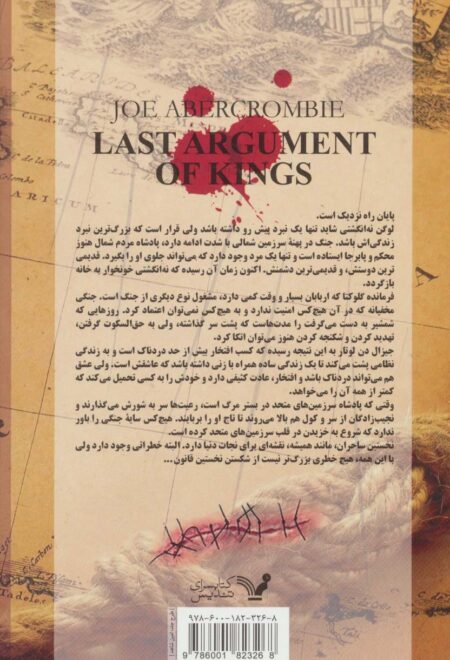 JOE ABERCROMBIE
LAST ARGUMENT
OF KINGS
پایان راه نزدیک است.
لوگن نه‌انگشتی شاید تنها یک نبرد پیش رو داشته باشد ولی قرار است که بزرگ‌ترین نبرد
زندگی‌اش باشد. جنگ در پهنهٔ سرزمین شمالی با شدت ادامه دارد، پادشاه مردم شمال هنوز
محکم و پابرجا ایستاده است و تنها یک مرد وجود دارد که می‌تواند جلوی او را بگیرد. قدیمی
ترین دوستش، و قدیمی‌ترین دشمنش. اکنون زمان آن رسیده که نه‌انگشتی خونخوار به خانه
بازگردد.
فرمانده گلوکتا که اربابان بسیار و وقت کمی دارد، مشغول نوع دیگری از جنگ است. جنگی
مخفیانه که در آن هیچ‌کس امنیت ندارد و به هیچ‌کس نمی‌توان اعتماد کرد. روزهایی که
شمشیر به دست می‌گرفت را مدت‌هاست که پشت سر گذاشته، ولی به حق‌السکوت گرفتن،
تهدید کردن و شکنجه کردن هنوز می‌توان اتکا کرد.
جیزال دن لوتار به این نتیجه رسیده که کسب افتخار بیش از حد دردناک است و به زندگی
نظامی پشت می‌کند تا یک زندگی ساده همراه با زنی داشته باشد که عاشقش است. ولی عشق
هم می‌تواند دردناک باشد و افتخار، عادت کثیفی دارد و خودش را به کسی تحمیل می‌کند که
کمتر از همه آن را می‌خواهد.
وقتی که پادشاه سرزمین‌های متحد در بستر مرگ است، رعیت‌ها سر به شورش می‌گذارند و
نجیب‌زادگان از سر و کول هم بالا می‌روند تا تاج او را بربایند. هیچ‌کس سایهٔ جنگی را باور
ندارد که شروع به خزیدن در قلب سرزمین‌های متحد کرده است.
نخستین ساحران، مانند همیشه، نقشه‌ای برای نجات دنیا دارد. البته خطراتی وجود دارد ولی
با این همه، هیچ خطری بزرگ‌تر نیست از شکستن نخستین قانون...
کتابسرای
تندیس
۹۷۸-۶۰۰-۱۸۲-۳۲۶-۸
9 786001 823268